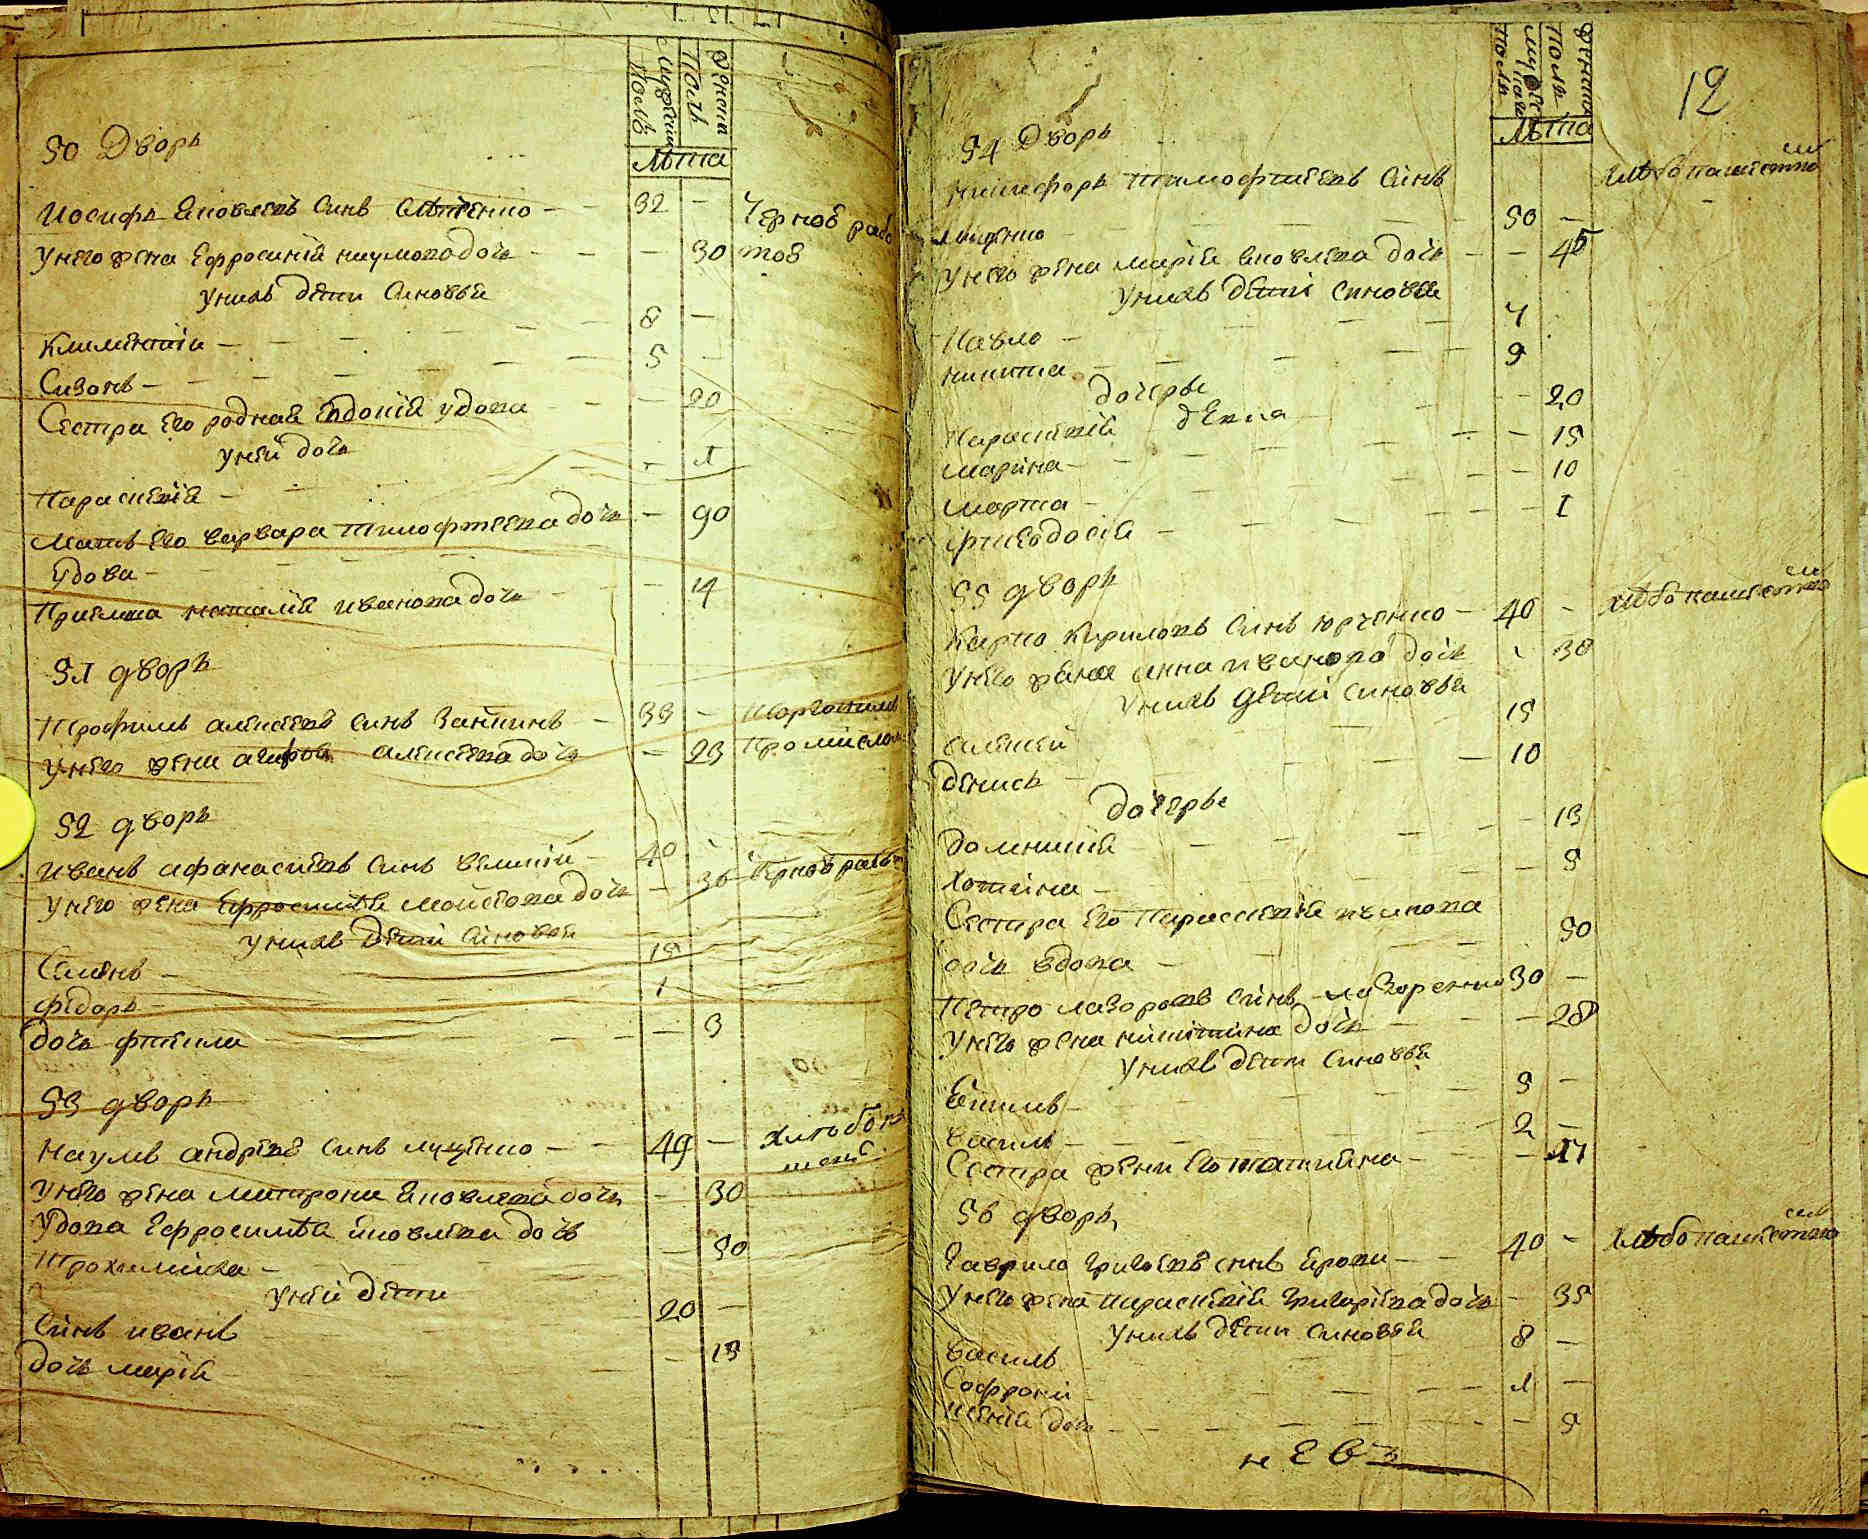 мужеска полъ
женска полъ
лѣта
50 Дворъ
Иосифъ Яковлевъ синъ 32 — Чернов рабо
У него жена Ефросинія Наумова дочь — 30 тоѣ
У нихъ дети синовья
Климентій — 8 —
Сизонъ — 5 —
Сестра его родная Евдокія удова — 20
У неи дочь
Параскевія — 1
Мать его Варвара Тимофтеева дочь — 90
удова —
Приемша Наталія Иванова дочь — 14
51 дворъ
Трофимъ Алексеевъ синъ 33 — торговимъ
У него жена Агафья Алексеева дочь — 23 промисломъ
52 дворъ
Иванъ Афанасиевъ синъ великій — 40
У него жена Ефросинія Мойсеева дочь — 36 Чернораб
У нихъ дети синовья
Семенъ — 15
Федоръ — 1
дочь Фтекла — 3
53 дворъ
Наумъ Андреевъ синъ Луценко — 49 — хлѣбопа
У него жена Матрона Яковлева дочь — 30
Удова Ефросинія Яковлева дочь
Трохимиха — 50
У неи дети
Синъ Иванъ 20 —
дочь Марія — 13
12
мужеска полъ
женска полъ
лѣта
54 Дворъ
Никифоръ Тимофтиевъ синъ хлѣбопашество
Луценко — 50 —
У него жена Марія Яковлева дочь — 45
У нихъ дети синовья
Павло — 4
Никита — 9
дочери
Параскевія девка — 20
Марина — 15
Марта — 10
Фтеодосія — 1
55 дворъ
Карпо Кириловъ синъ Юрченко — 40 — хлѣбопашество
У него жена Анна Иванова дочь 30
У нихъ дети синовья
Алексей 15
Денисъ — 10
дочери
Домникія — 13
Хотина — 9
Сестра его Параскевія
дочь вдова — 50
Петро Лазоровъ синъ Лазоренко 30 —
У него жена Никитина дочь — 28
У нихъ дети синовья
Якимъ — 9 —
Василь — 2 —
Сестра жени его Татиана — 17
56 дворъ
Гаврило Григориевъ синъ — 40 — хлѣбопашество
У него жена Параскевія Григориева дочь — 35
У нихъ дети синовья
Василь 8 —
Софроній — 1 —
дочь — 9